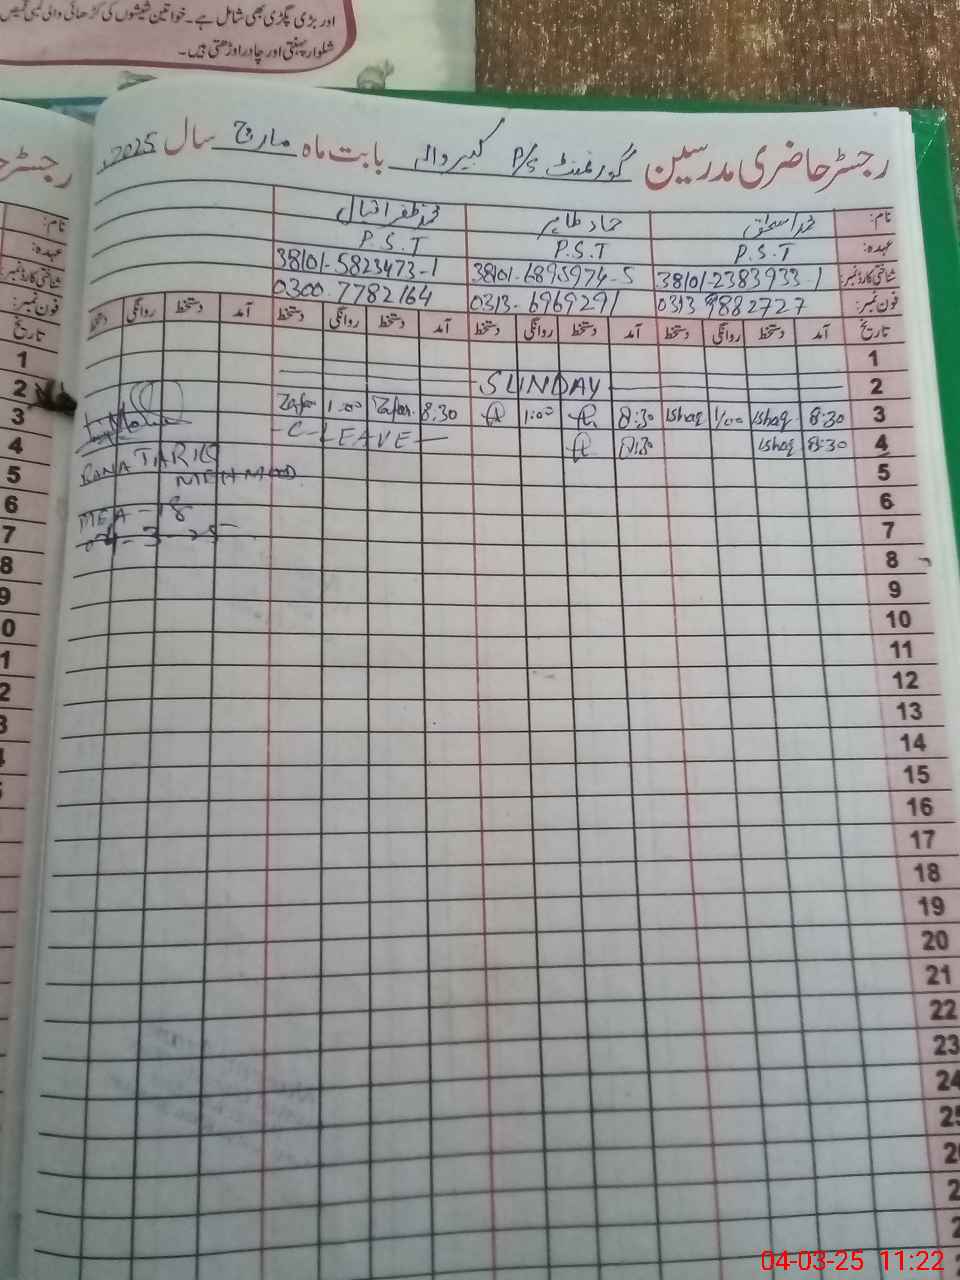 اور بڑی پگڑی بھی شامل ہے۔ خواتین شیشوں کی کڑھائی والی لمبی قمیض
شلوار پہنتی اور چادر اوڑھتی ہیں۔
رجسٹر حاضری مدرسین گورنمنٹ P/S کبیر والہ بابت ماہ مارچ سال 2025ء
نام: محمد اسحٰق حماد طاہر محمد ظفر اقبال
عہدہ: P.S.T P.S.T P.S.T
شناختی کارڈ نمبر: 38101-2383933-1 38101-6895974-5 38101-5823473-1
فون نمبر: 0313 9882727 0313-6969291 0300-7782164
تاریخ آمد دستخط روانگی دستخط آمد دستخط روانگی دستخط آمد دستخط روانگی دستخط آمد دستخط روانگی دستخط
1
2 SUNDAY
3 8:30 Ishaq 1/00 Ishaq 8:30 1:00 8.30 Zafar 1:00 Zafar
4 8:30 Ishaq 8:30 C-LEAVE
5 RANA TARIQ MEHMOOD
6 MEA-18
7 04-3-25
8
9
10
11
12
13
14
15
16
17
18
19
20
21
22
23
24
04-03-25 11:22